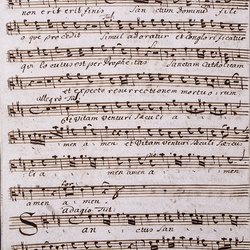 non erit erit finis Sanctum Dominum
o que procedit Simul adoratur et Conglorificatur
qui locutus est per Prophetas Sanctam Catholicam
et expecto resurrectionem mortuorum
allegro Tut:
et Vitam Venturi Saeculi a
men a men et Vitam Venturi Saecu
li a men a men a men
a men a men
adagio Tut:
Sanctus San